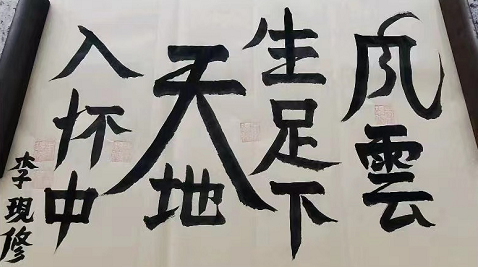 風雲
生足下
天地
入怀中
李現修